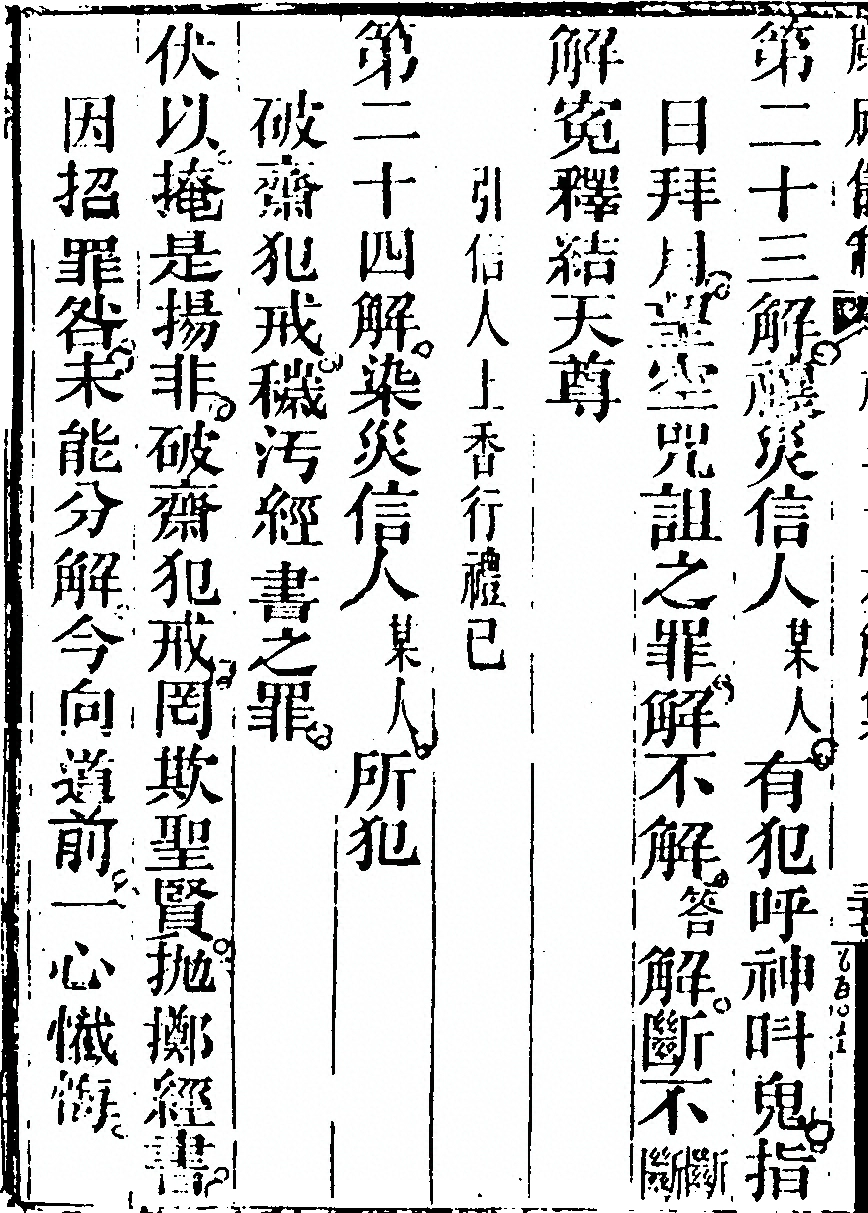 第二十三解禳災信人某人有犯呼神呌鬼指
日拜月望空咒詛之罪解不解答解斷不斷斷
解寃釋結天尊
引信人上香行禮已
第二十四解染災信人某人所犯
破齋犯戒穢汚經書之罪
伏以掩是揚非破齋犯戒罔欺聖賢抛擲經書
因招罪咎未能分解今向道前一心懺悔